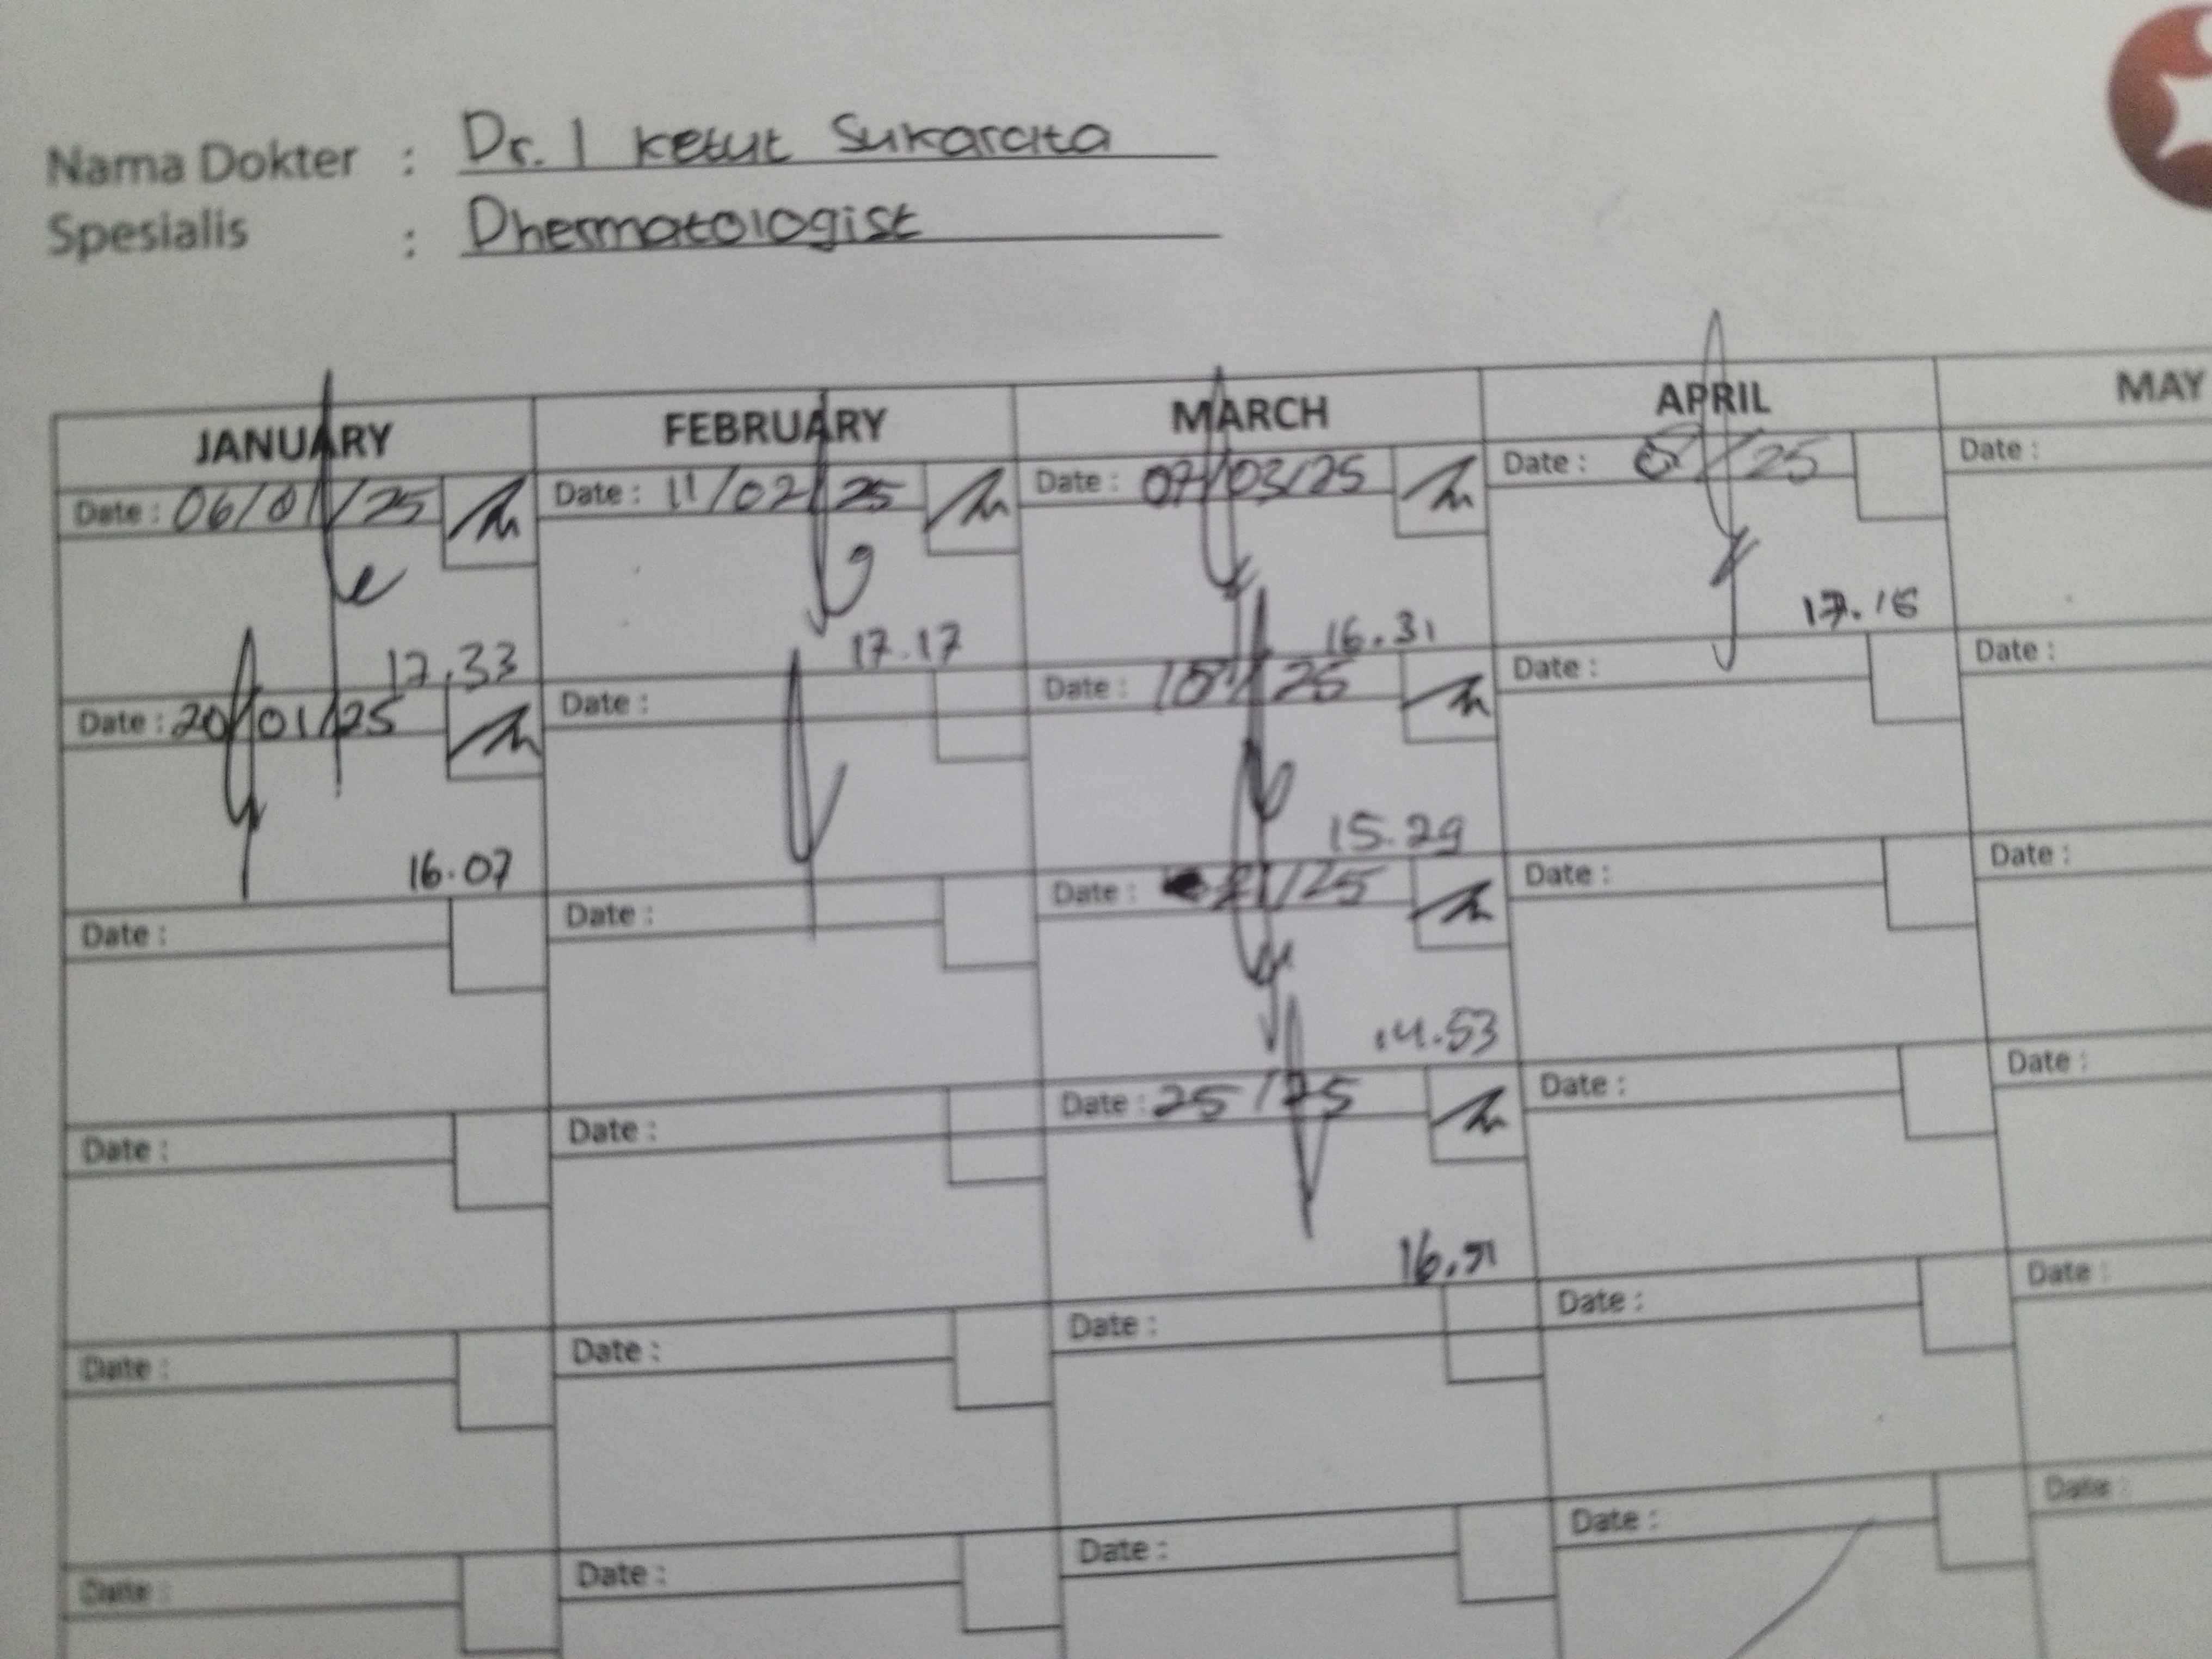 Nama Dokter : Dr. I Ketut Sukarata
Spesialis : Dhermatologist
JANUARY FEBRUARY MARCH APRIL MAY
Date : 06/01/25 Date : 11/02/25 Date : 07/03/25 Date : /25 Date :
17.33 17.17 16.31 17.16
Date : 20/01/25 Date : Date : /25 Date : Date :
16.07 15.29
Date : Date : Date : 21/25 Date : Date :
14.53
Date : Date : Date : 25/25 Date : Date :
Date : Date : Date : Date : Date :
Date : Date : Date : Date : Date :